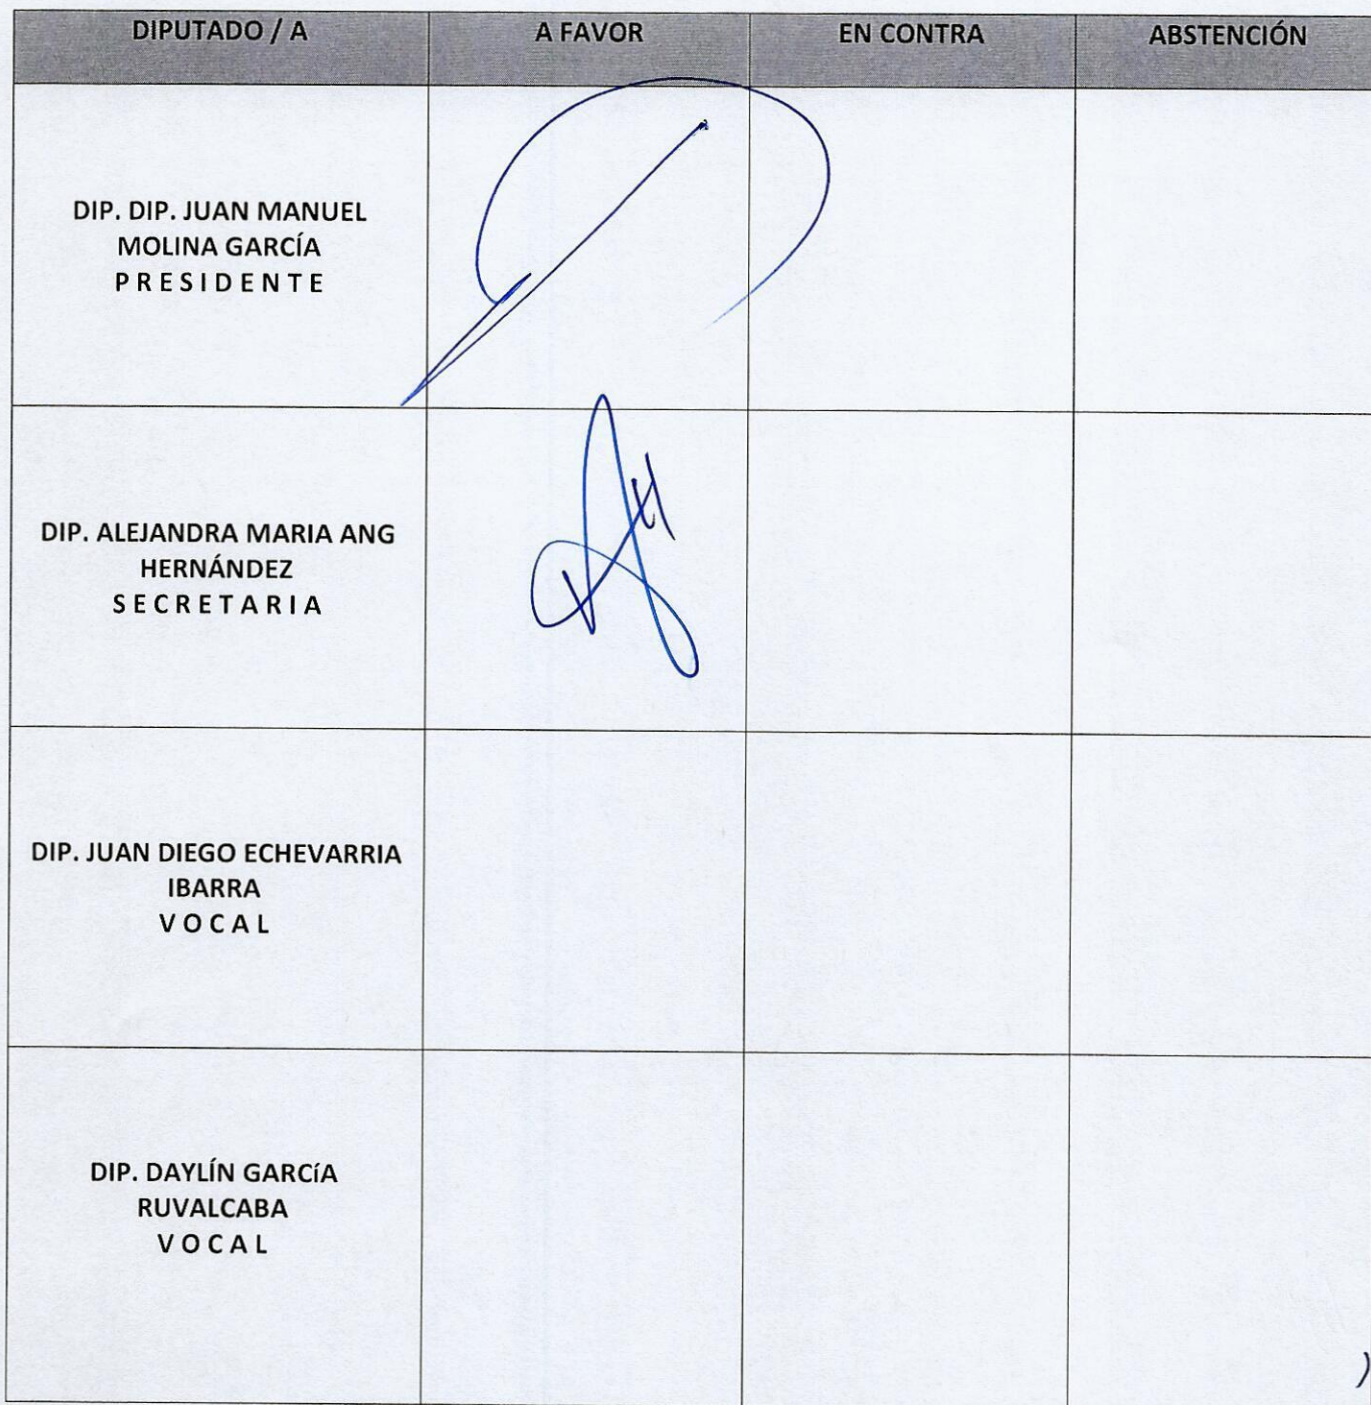 DIPUTADO / A
A FAVOR
EN CONTRA
ABSTENCIÓN
DIP. DIP. JUAN MANUEL
MOLINA GARCÍA
PRESIDENTE
DIP. ALEJANDRA MARIA ANG
HERNÁNDEZ
SECRETARIA
DIP. JUAN DIEGO ECHEVARRIA
IBARRA
VOCAL
DIP. DAYLÍN GARCÍA
RUVALCABA
VOCAL